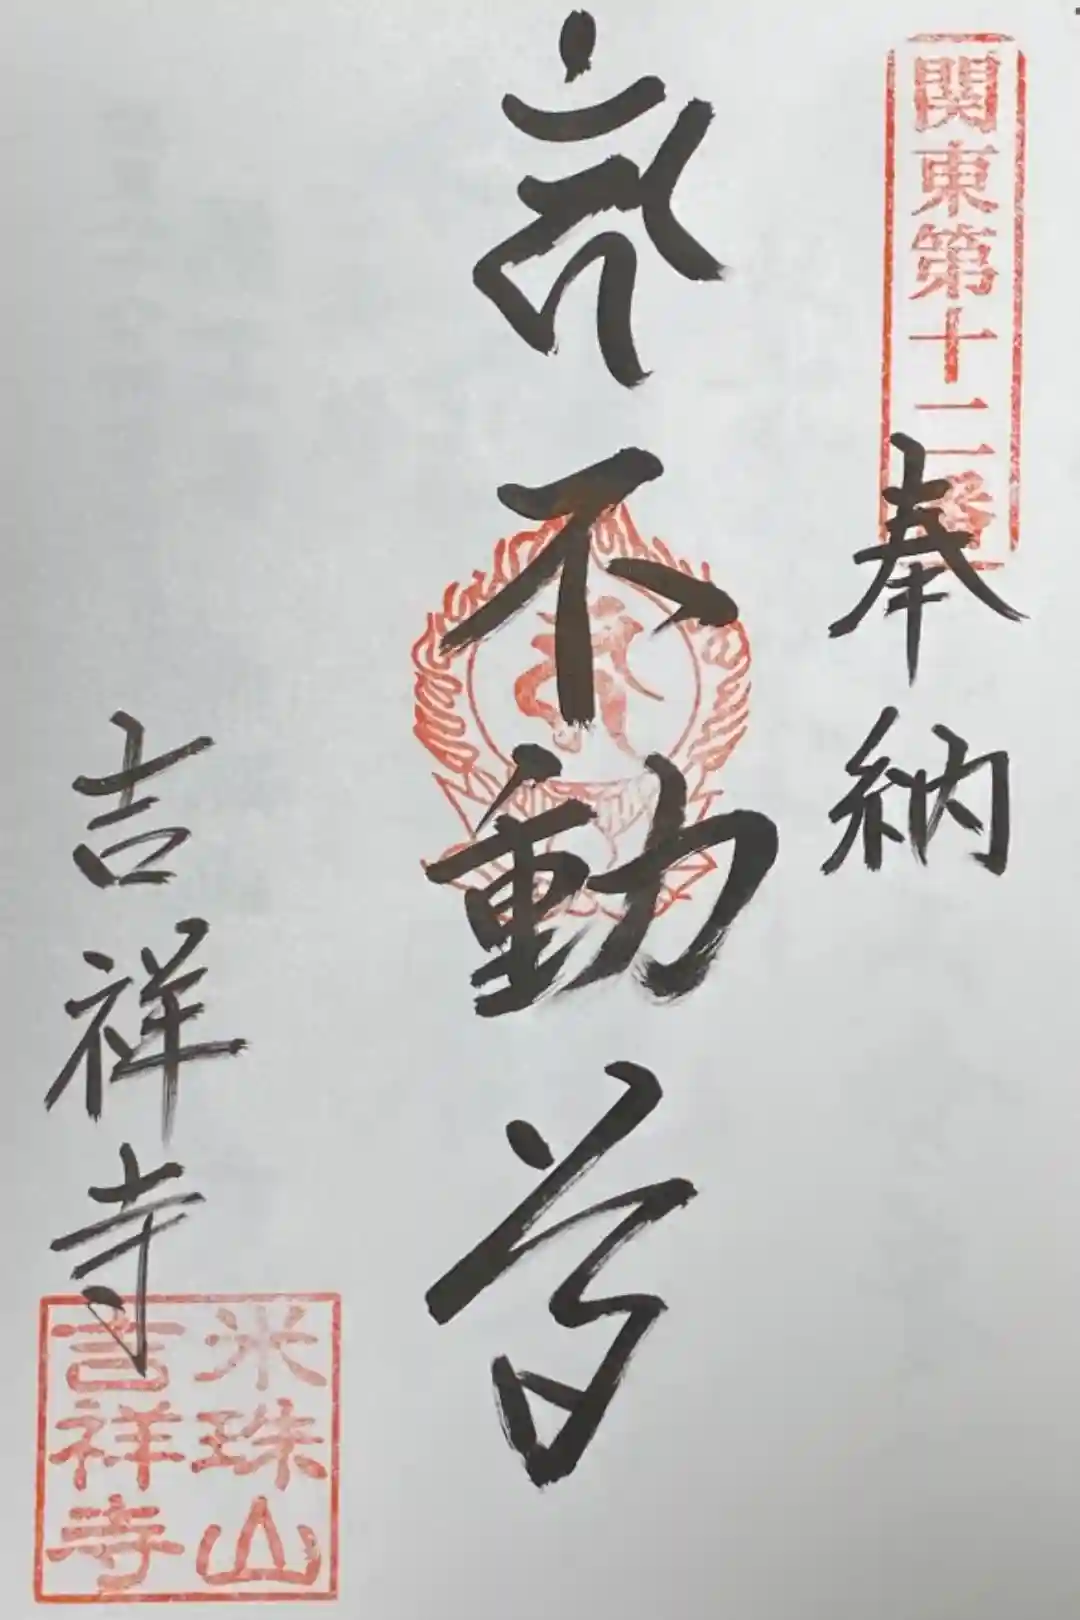 関東第十二番
奉納
不動尊
吉祥寺
米珠山
吉祥寺